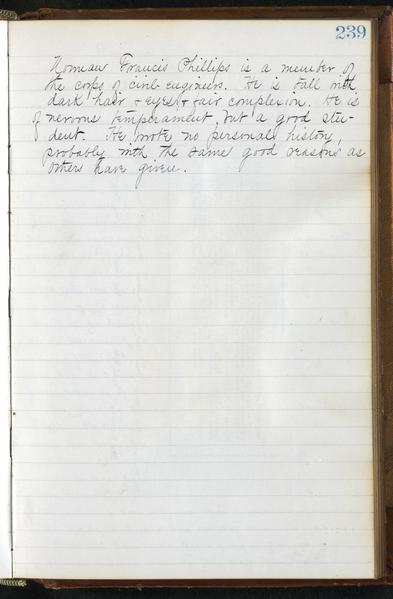 239
Norman Francis Phillips is a member of
the corps of civil engineers. He is tall with
dark hair & eyes & fair complexion. He is
of nervous temperament, but a good stu-
dent. He wrote no personal history,
probably with the same good reasons as
others have given.